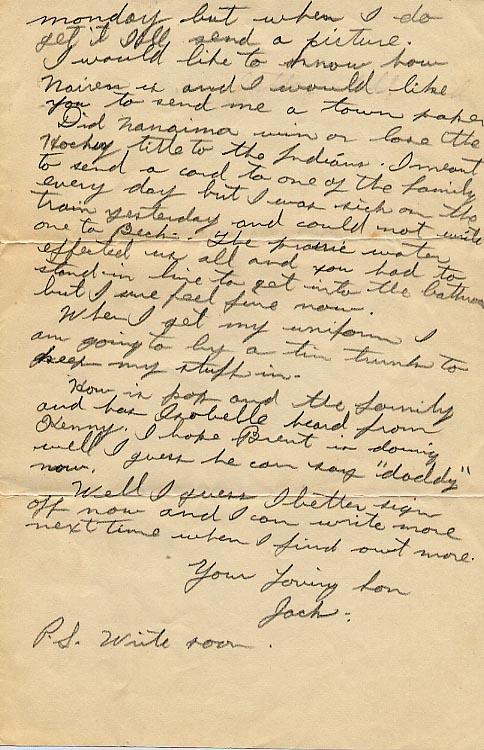 monday but when I do
get it I'll send a picture.
I would like to know how
Naireen is and I would like
you to send me a town paper
Did Nanaimo win or lose the
Hockey title to the Indians. I meant
to send a card to one of the family
every day but I was sick on the
train yesterday and could not write
one to Beck. The prairie water
effected us all and you had to
stand in line to get into the bathroom
but I sure feel fine now.
When I get my uniform I
am going to by a tin trunk to
keep my stuff in.
How is pop and the family
and has Isobelle heard from
Kenny. I hope Brent is doing
well I guess he can say "daddy"
now.
Well I guess I better sign
off now and I can write more
next time when I find out more.
Your Loving Son
Jack.
P.S. Write soon.